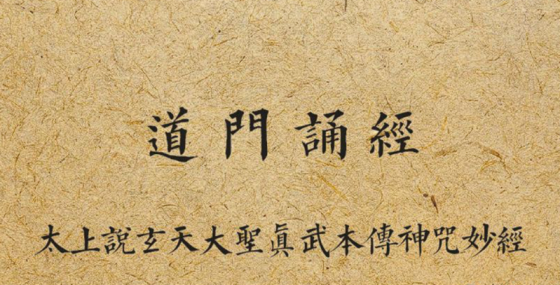 道門誦經
太上說玄天大聖眞武本傳神咒妙經